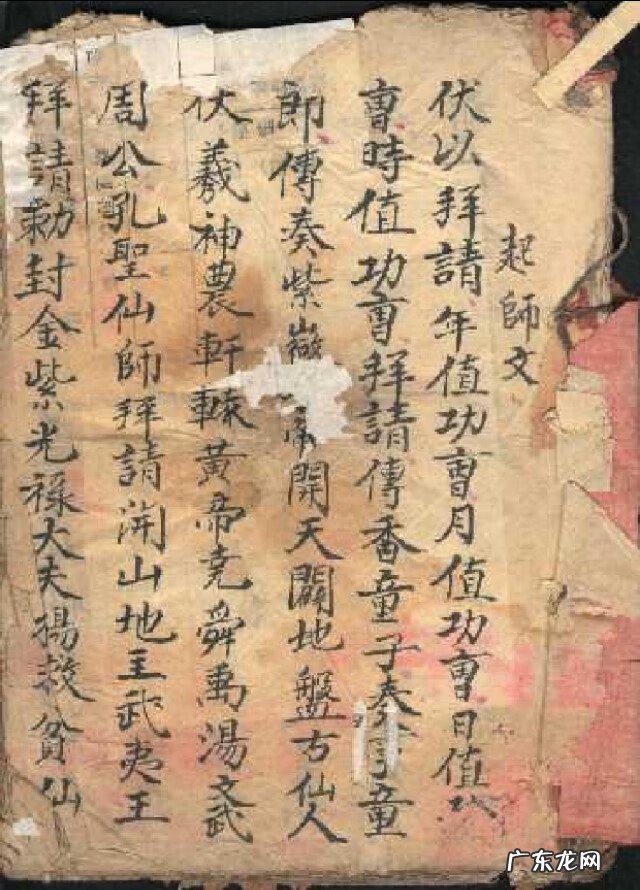 起師文
伏以拜請年值功曹月值功曹日值功
曹時值功曹拜請傳香童子奏事童
郎傳奏紫嶽帝開天闢地盤古仙人
伏羲神農軒轅黃帝堯舜禹湯文武
周公孔聖仙師拜請開山地王武夷王
拜請勅封金紫光祿大夫楊救貧仙
广东龙网
WWW.GDDBS.COM